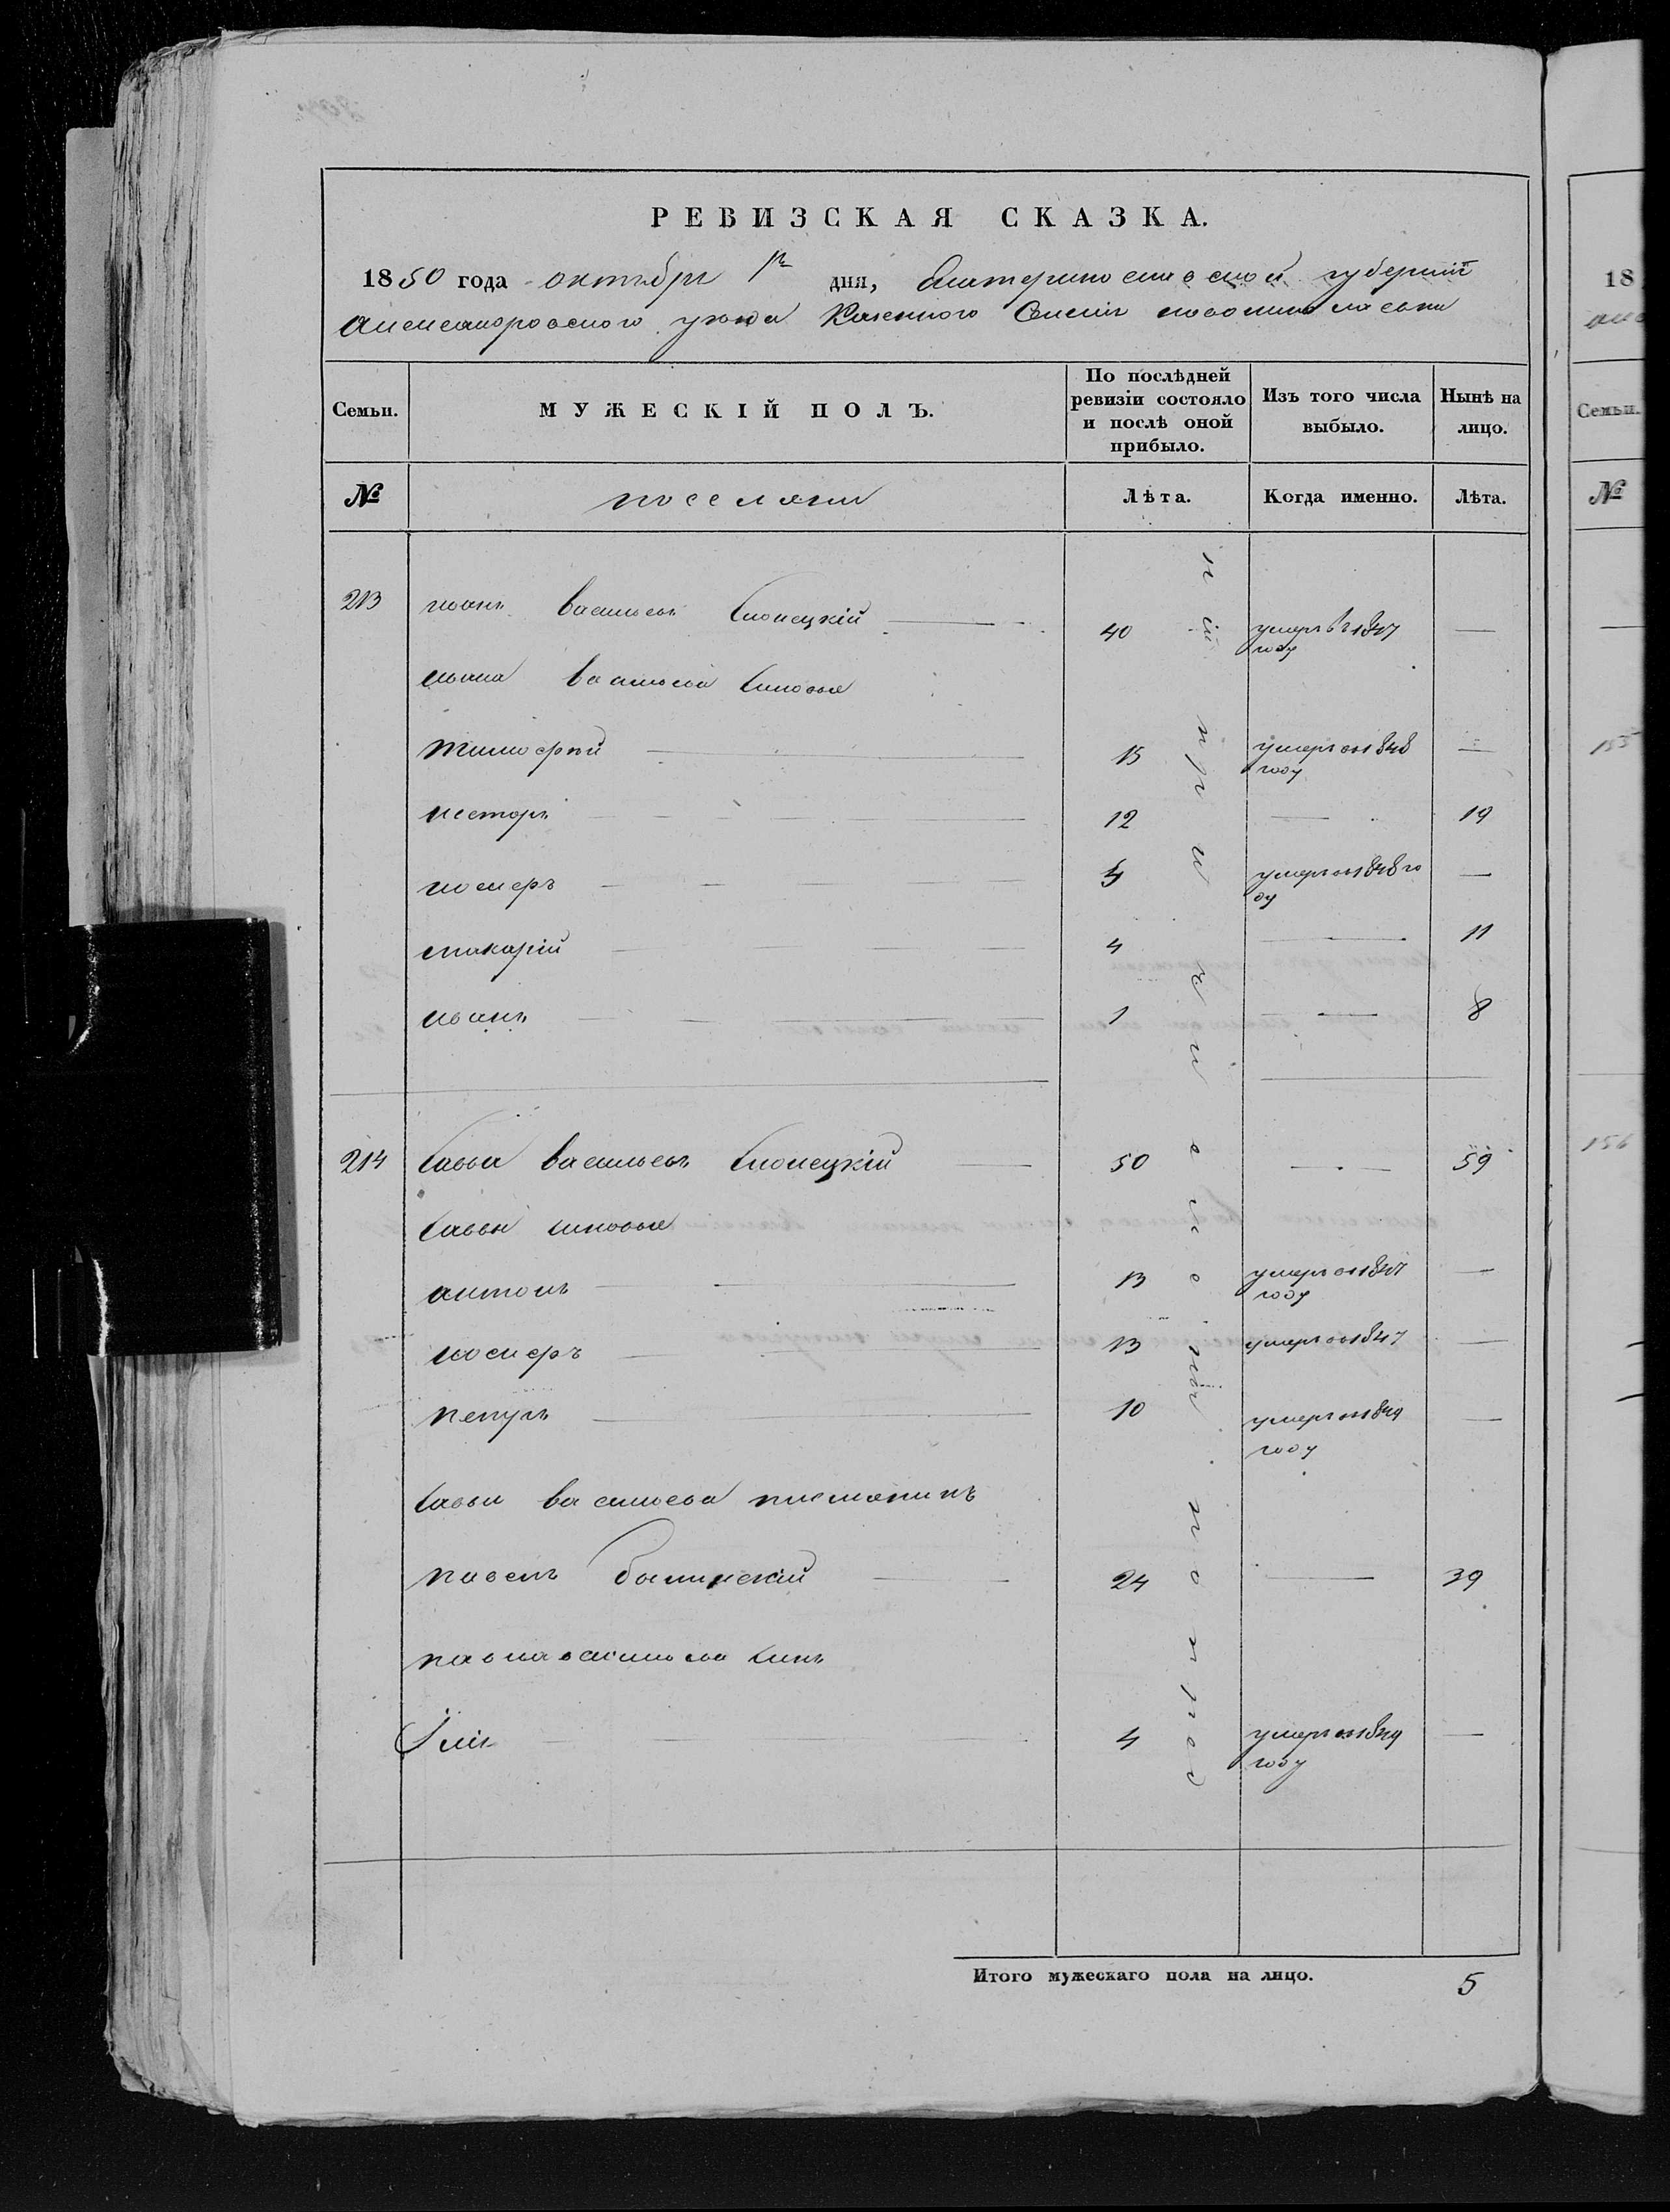 РЕВИЗСКАЯ СКАЗКА.
1850 года октября 1го дня, Екатеринославской губернии
Александровского уезда Казенного Селения
Семьи. МУЖЕСКІЙ ПОЛЪ. По послѣдней ревизіи состояло и послѣ оной прибыло. Изъ того числа выбыло. Нынѣ на лицо.
№ поселяни Лѣта. Когда именно. Лѣта.
213 иванъ васильевъ 40 умеръ въ 1847 году —
ивана васильева синовья
тимофей 15 умеръ в 1848 году —
несторъ 12 — 19
иосифъ 5 умеръ в 1848 году —
макарій 4 — 11
иванъ 1 — 8
214 Савва васильевъ 50 — 59
Саввы синовья
антонъ 13 умеръ в 1847 году —
иосифъ 13 умеръ в 1847 —
петръ 10 умеръ в 1849 году —
Саввы васильева племяникъ
павелъ 24 — 39
павла васильева синъ
Илія 4 умеръ в 1849 году —
Итого мужескаго пола на лицо. 5
18
Семьи.
№
155
156